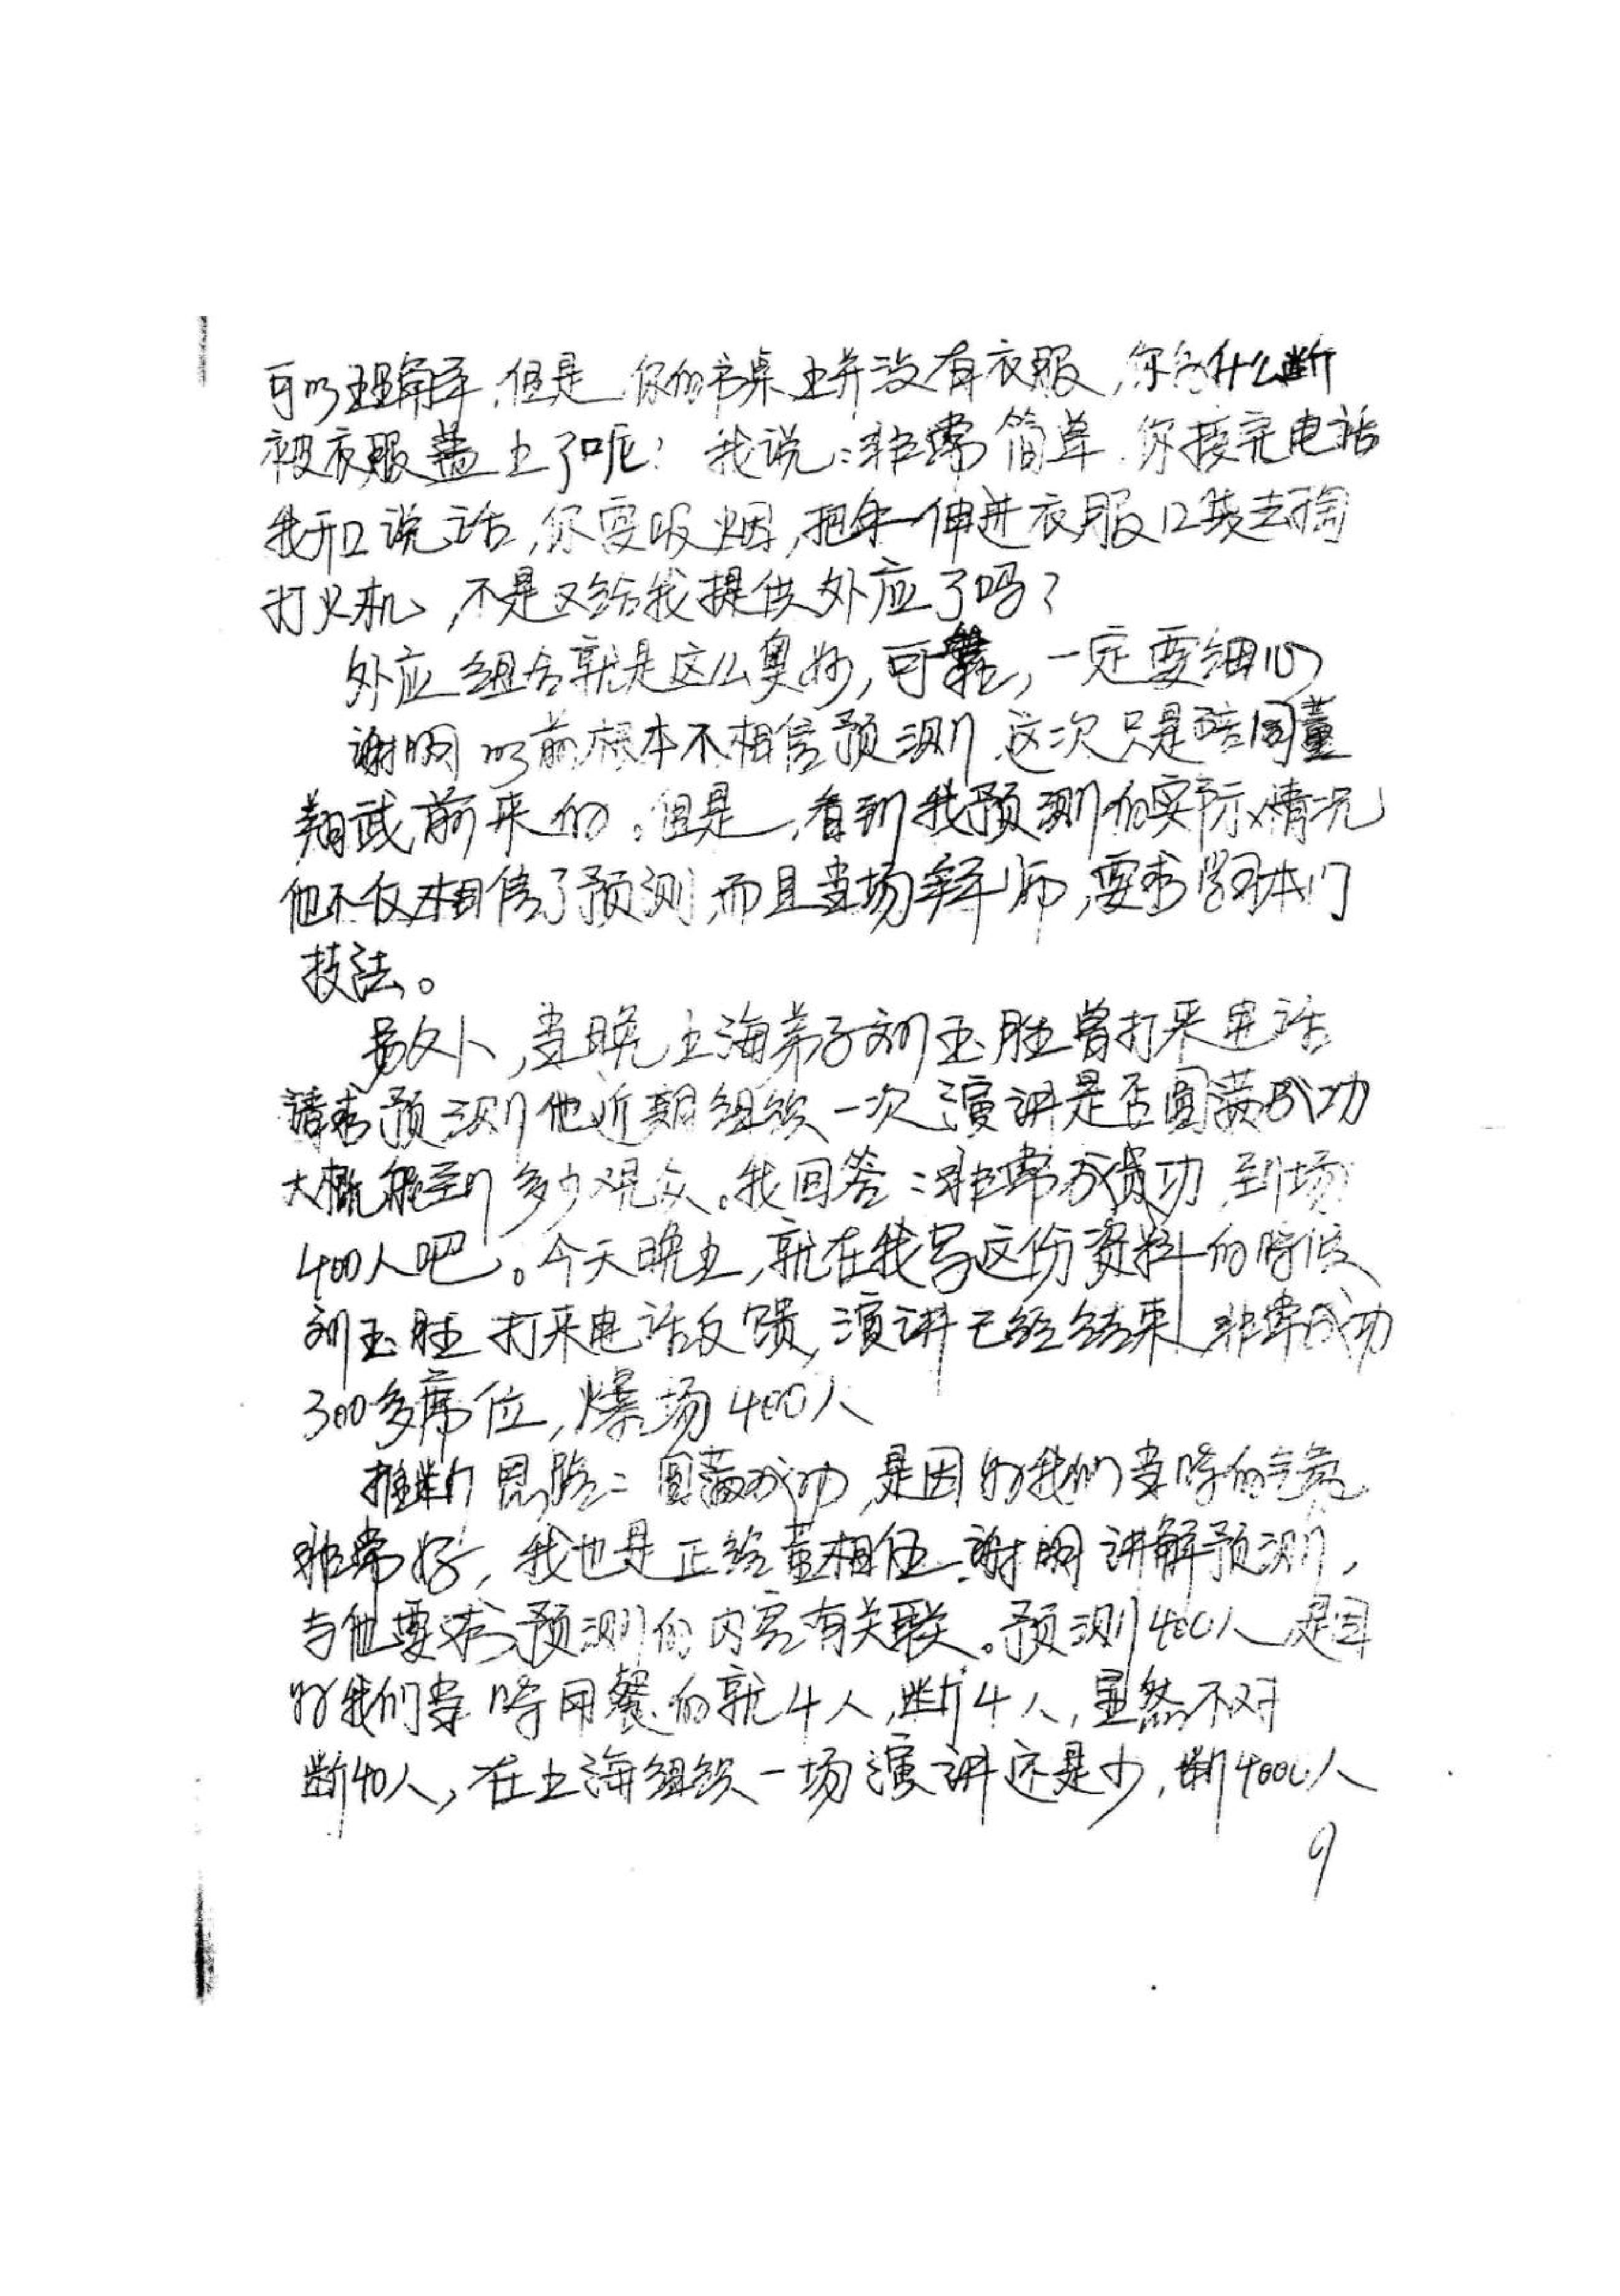 可以理解，但是，你的书桌上并没有衣服，你为什么断
被衣服盖上了呢？我说：非常简单，你接完电话
我开口说话，你要吸烟，把手伸进衣服口袋去掏
打火机，不是又给我提供外应了吗？
外应组合就是这么奥妙，可靠，一定要细心
谢明以前根本不相信预测，这次只是陪同董
翔武前来的。但是，看到我预测的实际情况
他不仅相信了预测，而且当场拜师，要求学习本门
技法。
另外，当晚上海弟子刘玉胜曾打来电话
请求预测他近期组织一次演讲是否圆满成功
大概能到多少观众。我回答：非常成功，到场
400人吧。今天晚上，就在我写这份资料的时候
刘玉胜打来电话反馈，演讲已经结束，非常成功
300多席位，爆场400人
推断思路：圆满成功，是因为我们当时的气氛
非常好，我也是正给董相伍、谢明讲解预测，
与他要求预测的内容有关联。预测400人，是因
为我们当时用餐的就4人，断4人，显然不对
断40人，在上海组织一场演讲还是少，断4000人
9